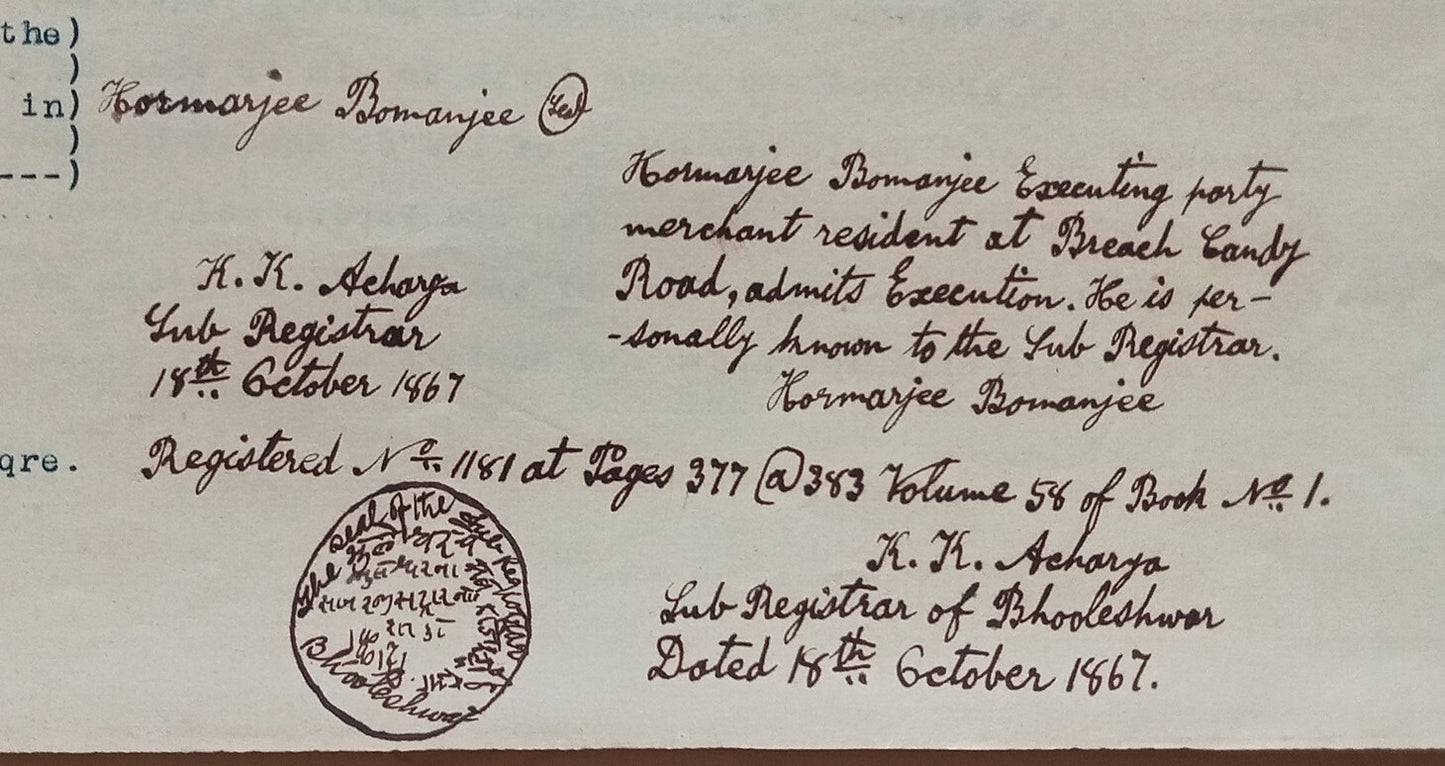 the)
)
in) Hormarjee Bomanjee
)
---)
Hormarjee Bomanjee Executing party
merchant resident at Breach Candy
Road, admits Execution. He is per-
-sonally known to the Sub Registrar.
Hormarjee Bomanjee
K. K. Acharya
Sub Registrar
18th October 1867
qre.
Registered No. 1181 at Pages 377 @ 383 Volume 58 of Book No. 1.
The Seal of the Sub Registrar of
Bhooleshwar
K. K. Acharya
Sub Registrar of Bhooleshwar
Dated 18th October 1867.